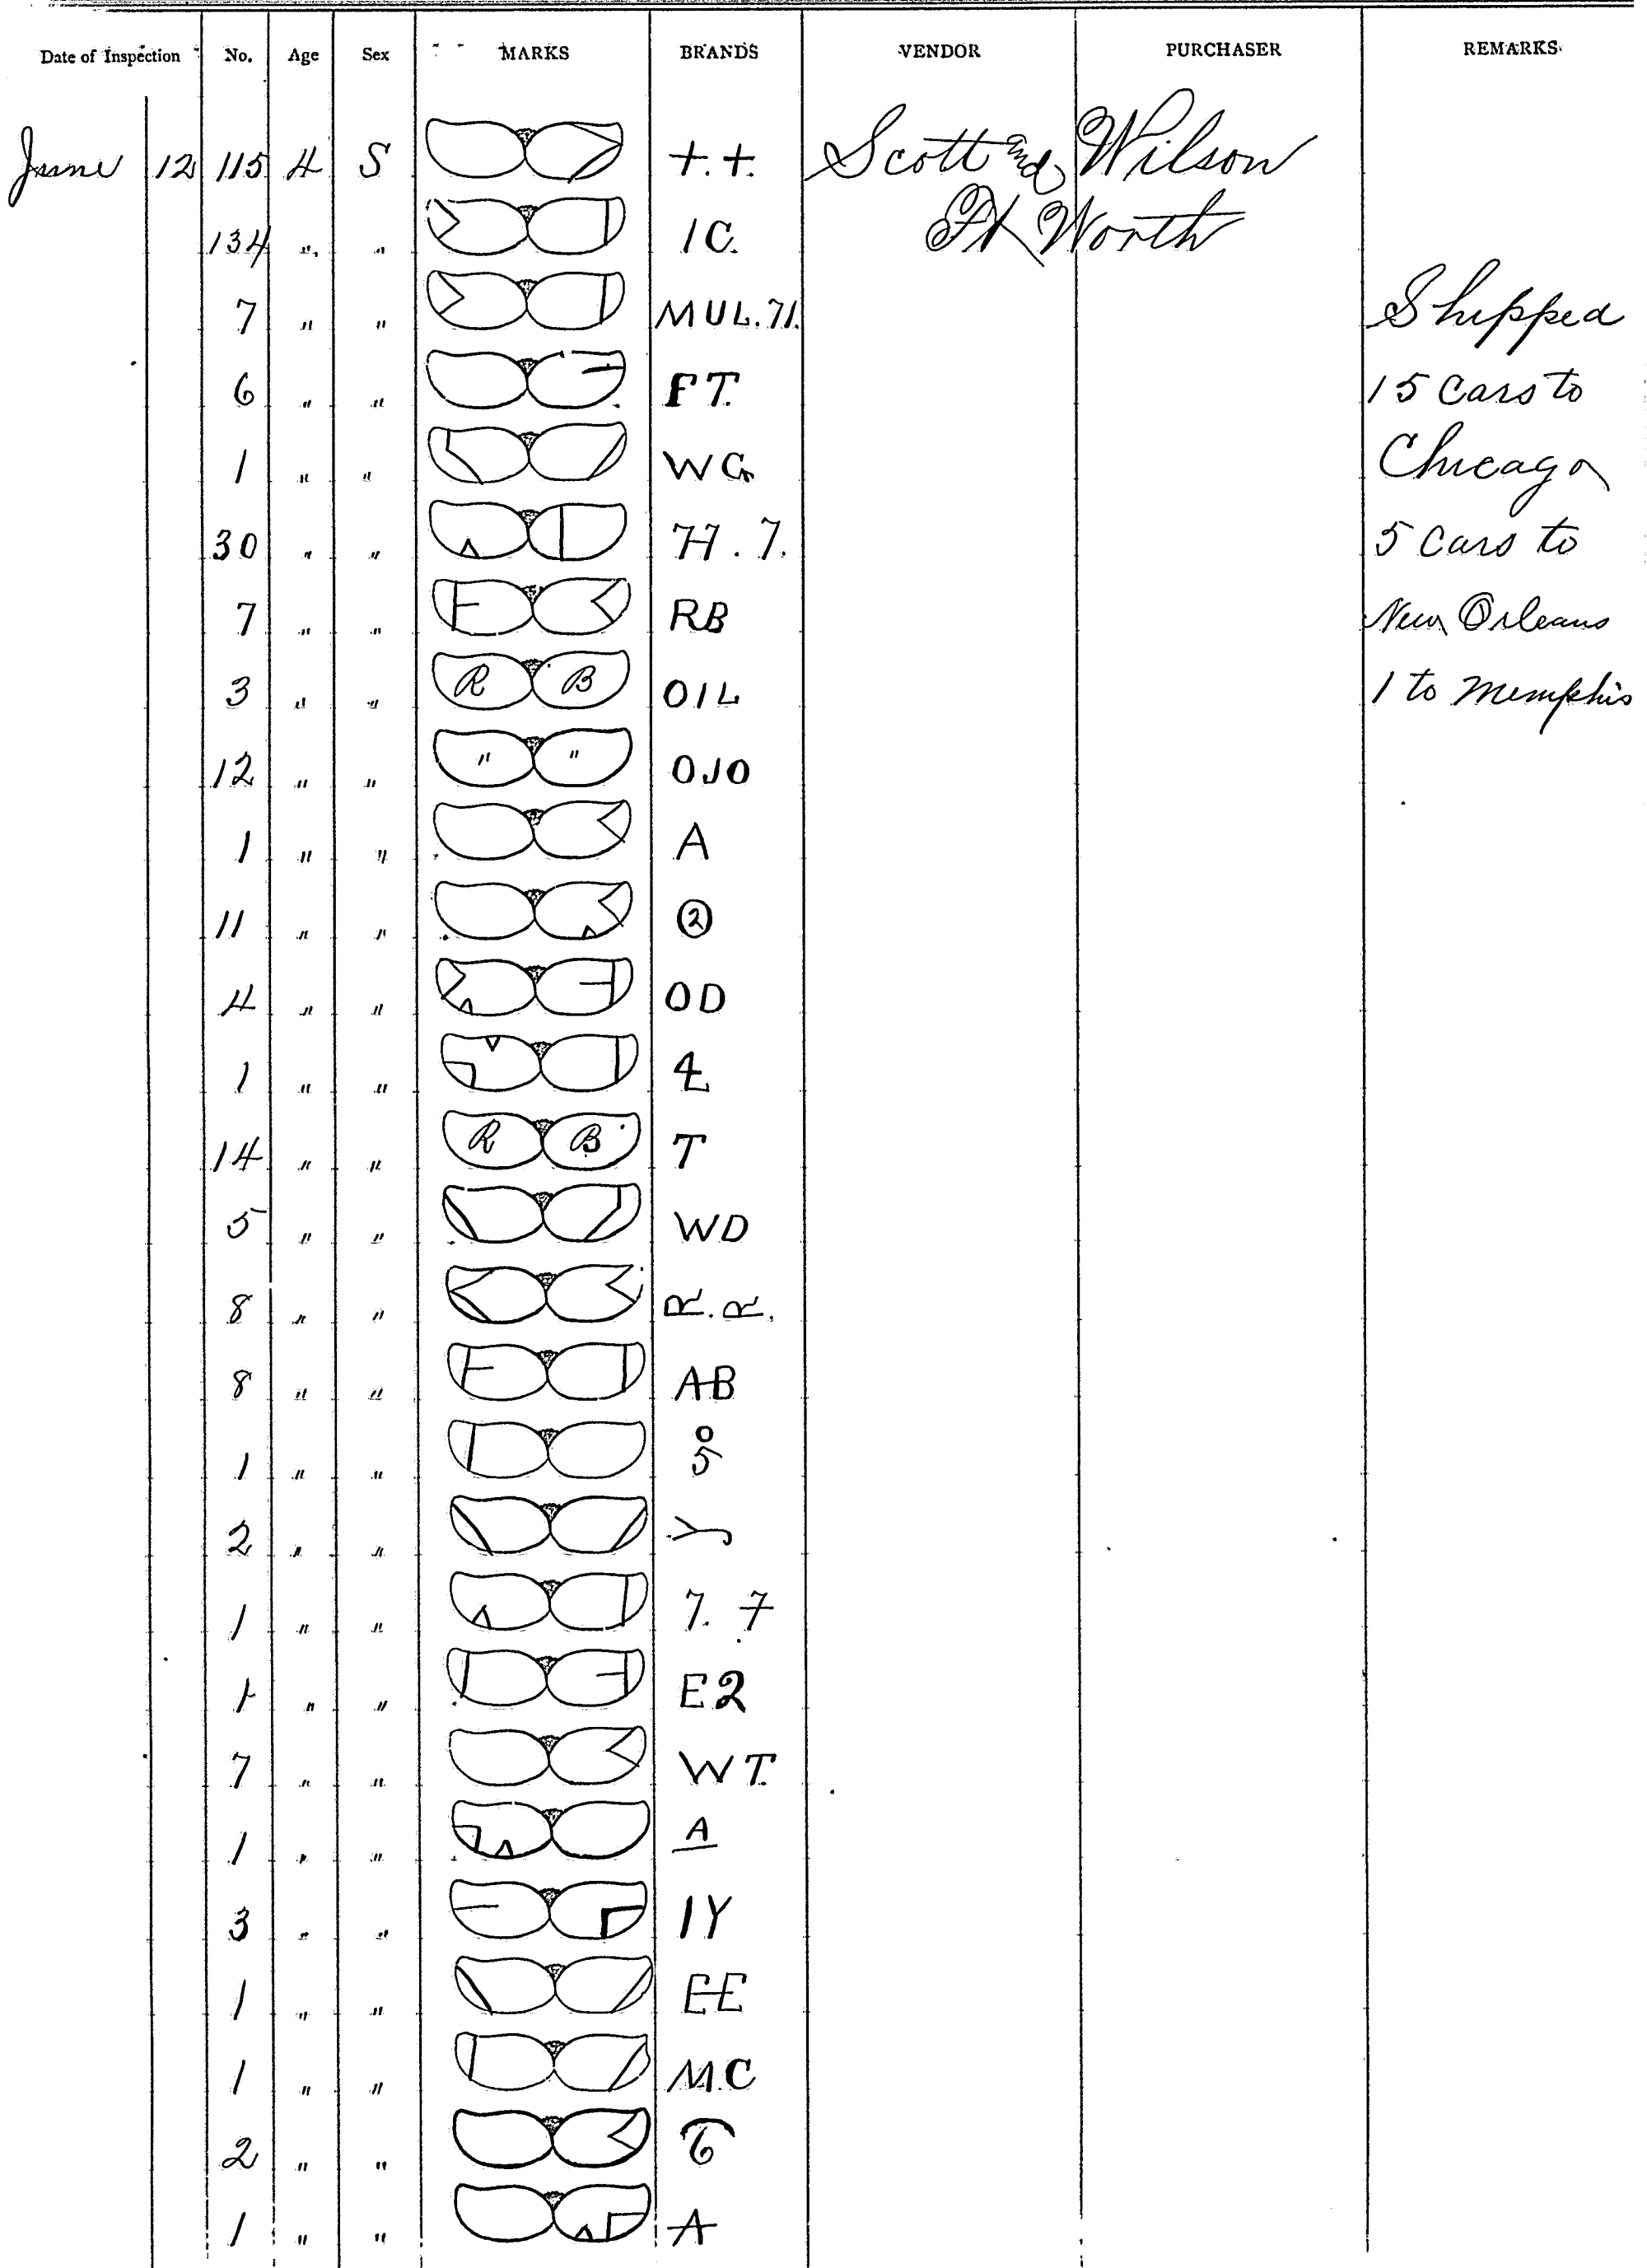 Date of Inspection No. Age Sex MARKS BRANDS VENDOR PURCHASER REMARKS
June 12 115 4 S ++ Scott and Wilson
134 " " IC. Ft Worth
7 " " MUL. 71. Shipped
6 " " FT. 15 Cars to
1 " " WG Chicago
30 " " H . 7. 5 Cars to
7 " " RB New Orleans
3 " " R B OIL 1 to Memphis
12 " " " " OJO
1 " " A
11 " " ②
4 " " OD
1 " "
14 " " R B T
5 " " WD
8 " " R. R.
8 " " AB
1 " " 5
2 " " Y
1 " " 7. 7
1 " " E2
7 " " WT.
1 " " A
3 " " IY
1 " " EE
1 " " MC
2 " "
1 " " A